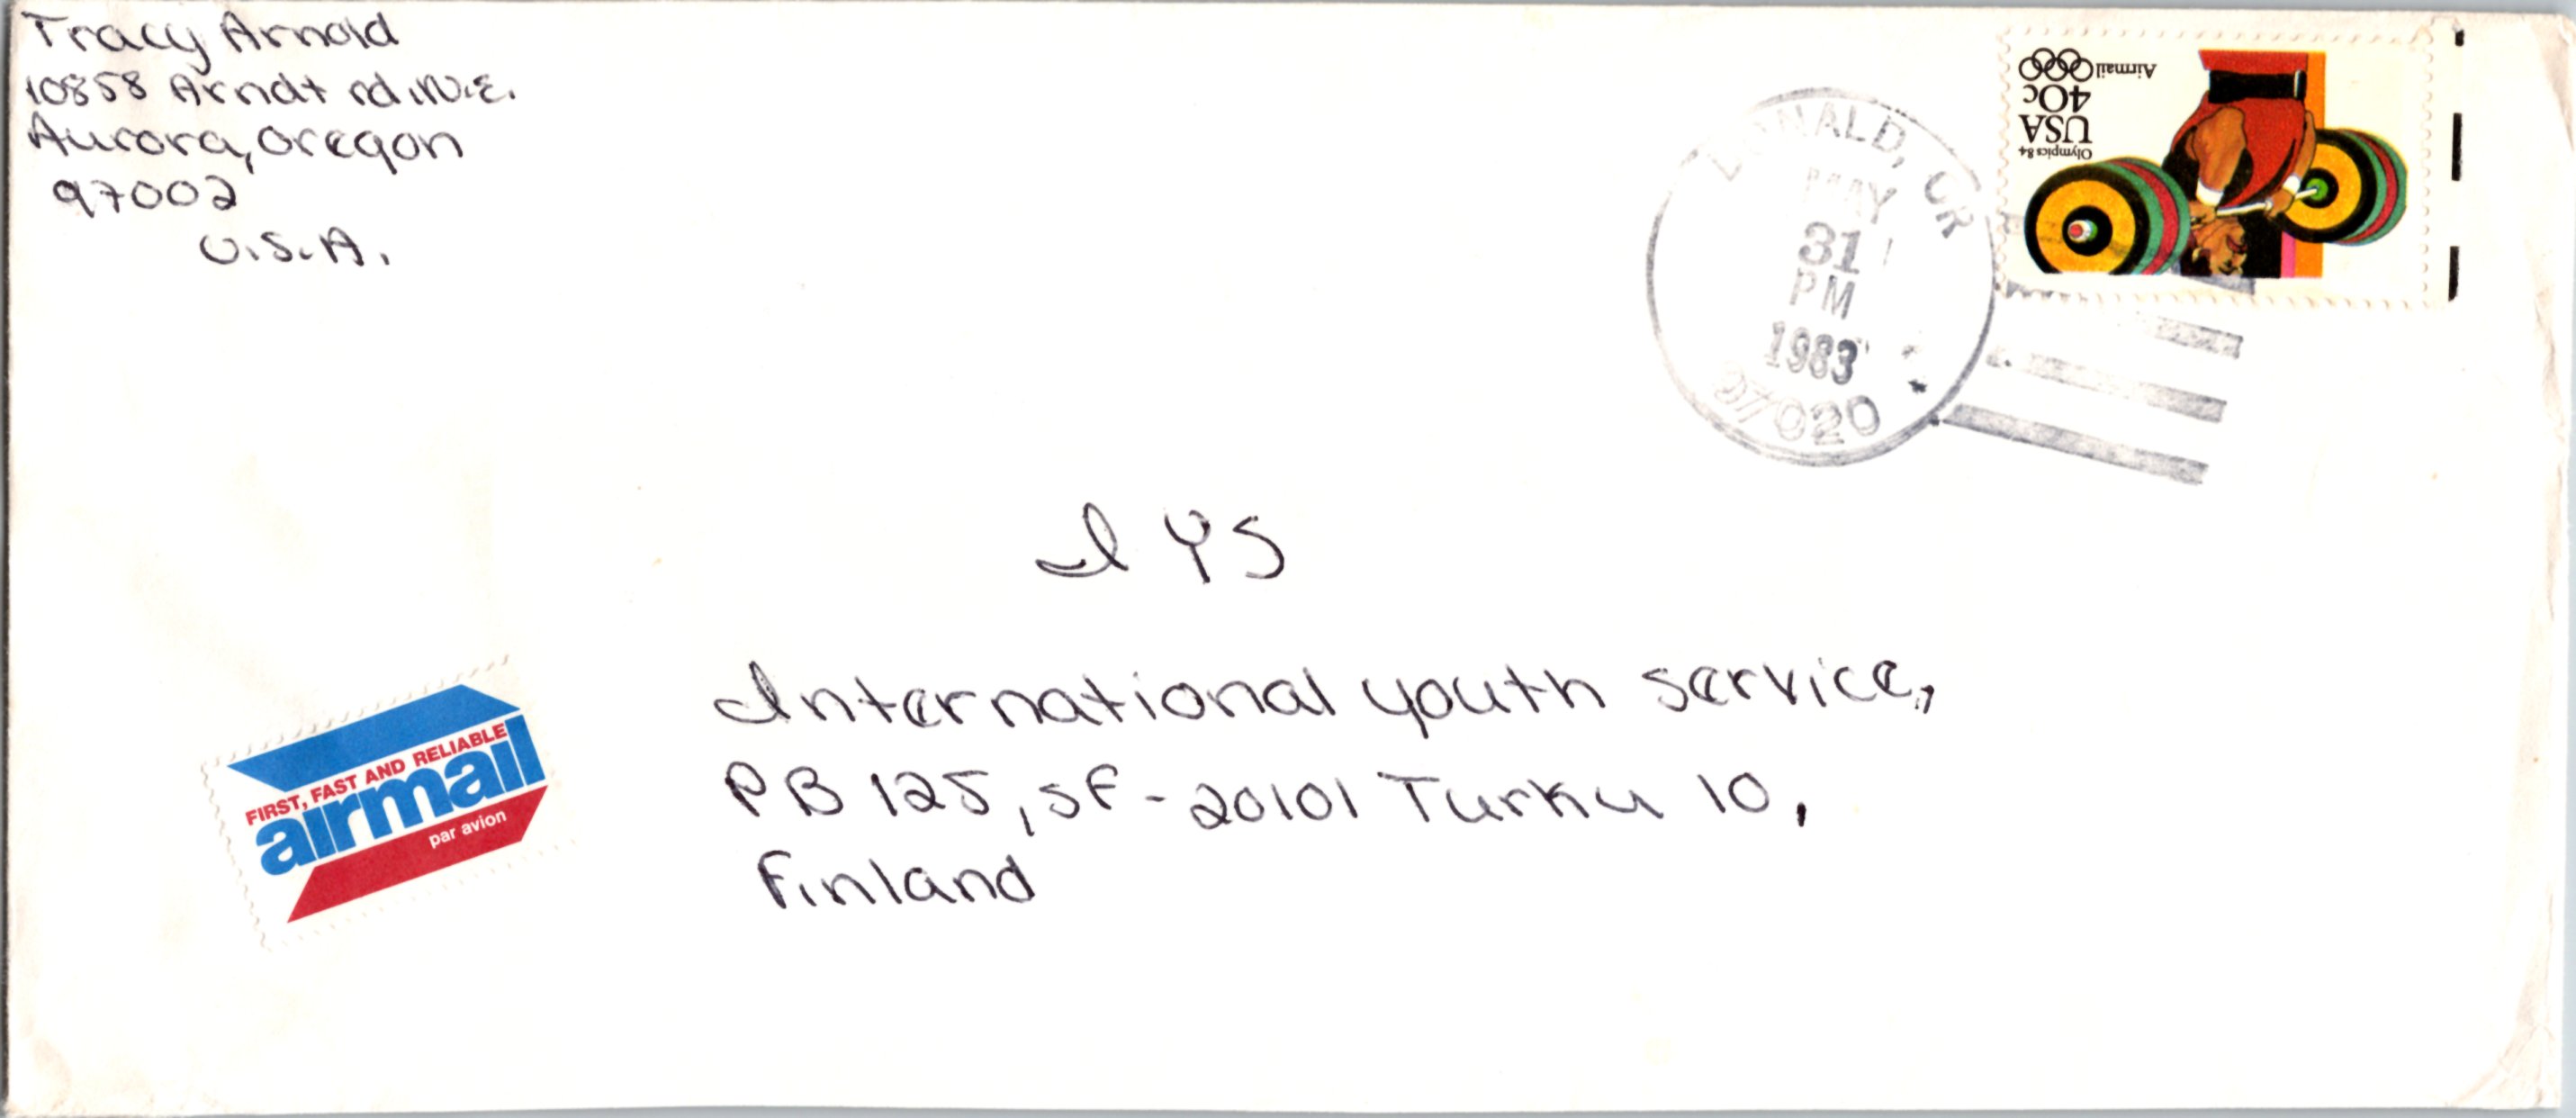 Tracy Arnold
10858 Arndt rd.N.E.
Aurora, Oregon
97002
U.S.A.
DONALD, OR
MAY
31
PM
1983
97020
Olympics 84
USA
40c
Airmail
IYS
International youth service,
PB 125, SF-20101 Turku 10,
Finland
FIRST, FAST AND RELIABLE
airmail
par avion